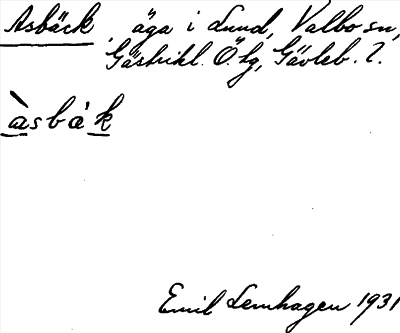 Asbäck, äga i Lund, Valbo sn,
Gästrikl. Ö. tg, Gävleb. l.
àsbák
Emil Lemhagen 1931